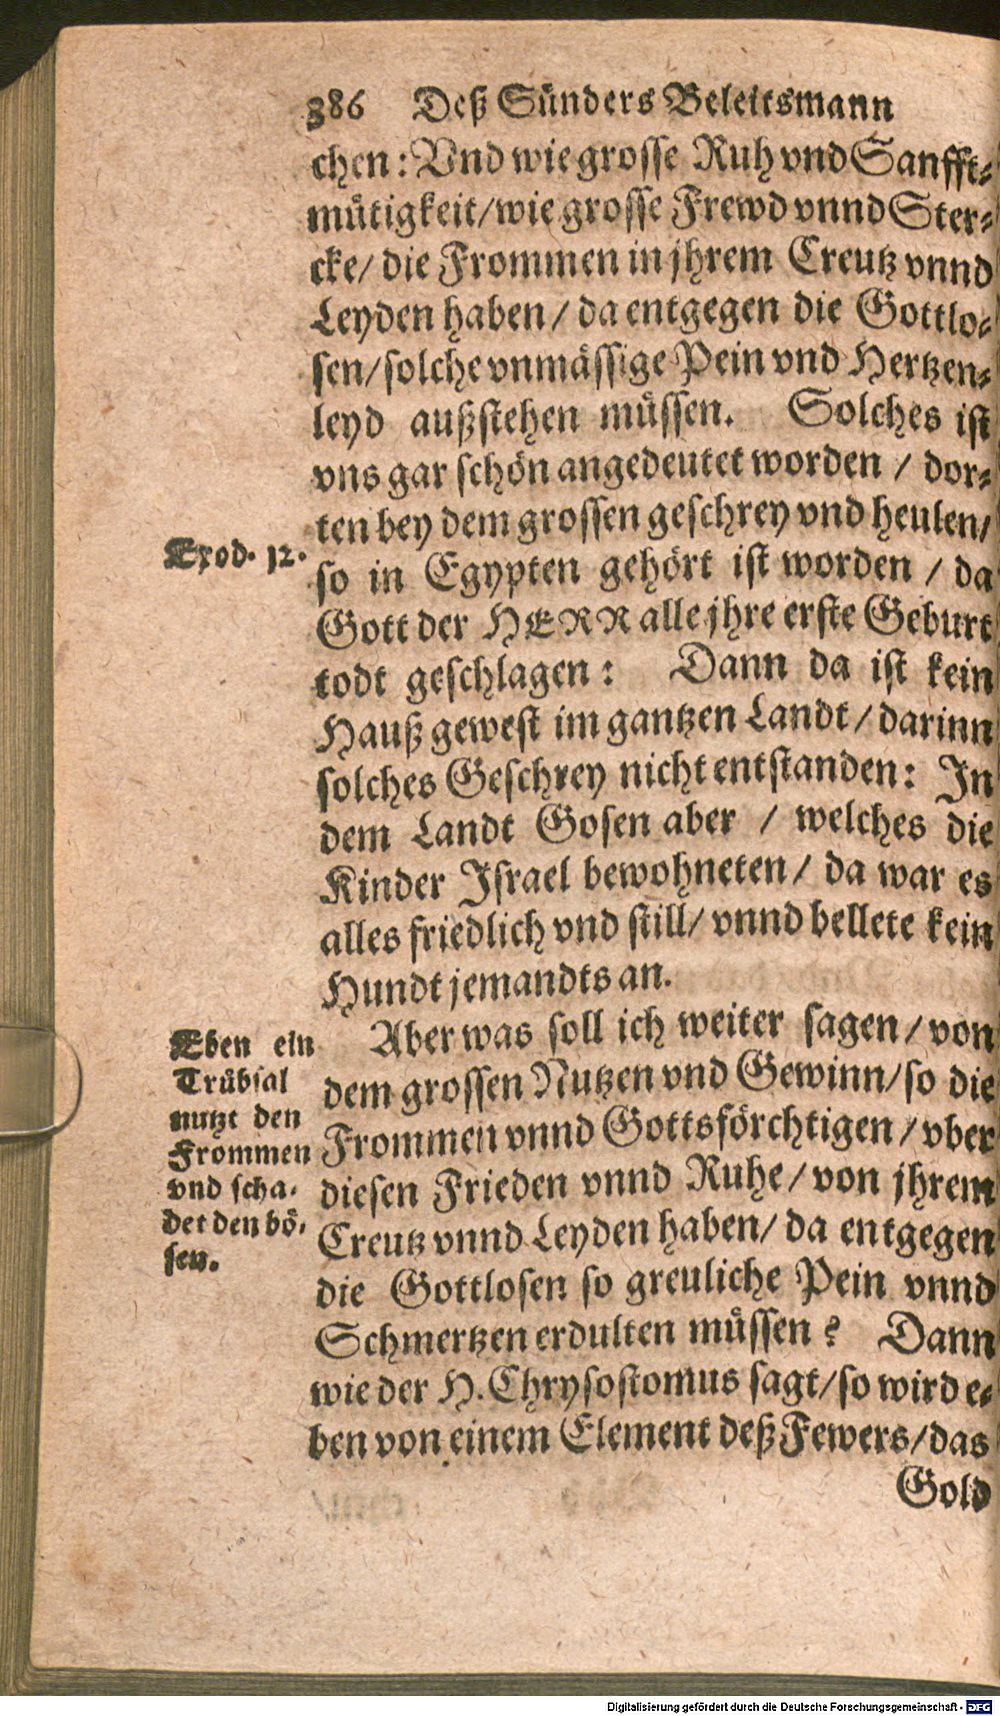 386 Deß Sünders Beleitsmann
chen: Vnd wie grosse Ruh vnd Sanfft-
mütigkeit/ wie grosse Frewd vnnd Ster-
cke/ die Frommen in jhrem Creutz vnnd
Leyden haben/ da entgegen die Gottlo-
sen/ solche vnmässige Pein vnd Hertzen-
leyd außstehen müssen. Solches ist
vns gar schön angedeutet worden / dor-
ten bey dem grossen geschrey vnd heulen/
Exod. 12.
so in Egypten gehört ist worden / da
Gott der HERR alle jhre erste Geburt
todt geschlagen: Dann da ist kein
Hauß gewest im gantzen Landt / darinn
solches Geschrey nicht entstanden: In
dem Landt Gosen aber / welches die
Kinder Israel bewohneten/ da war es
alles friedlich vnd still/ vnnd bellete kein
Hundt jemandts an.
Eben ein
Trübsal
nutzt den
Frommen
vnd scha-
det den bö-
sen.
Aber was soll ich weiter sagen / von
dem grossen Nutzen vnd Gewinn/ so die
Frommen vnnd Gottsförchtigen / vber
diesen Frieden vnnd Ruhe / von jhrem
Creutz vnnd Leyden haben/ da entgegen
die Gottlosen so greuliche Pein vnnd
Schmertzen erdulten müssen? Dann
wie der H. Chrysostomus sagt/ so wird e-
ben von einem Element deß Fewers/ das
Gold
Digitalisierung gefördert durch die Deutsche Forschungsgemeinschaft - DFG